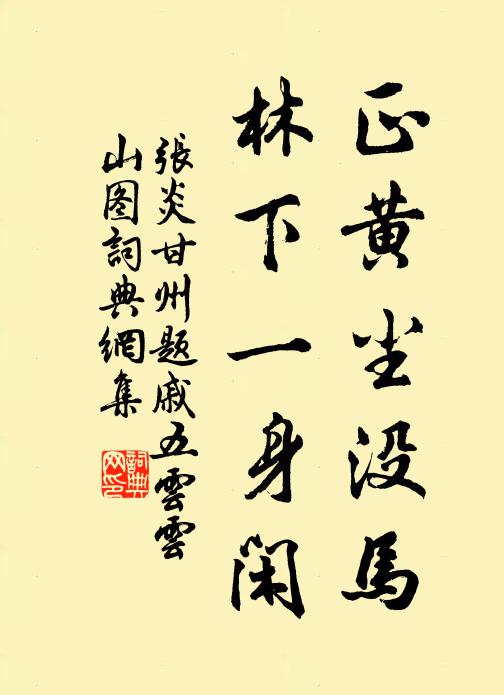 正黄尘没马
林下一身闲
張炎甘州題戚五雲雲
山图詞典網集
詞典网印